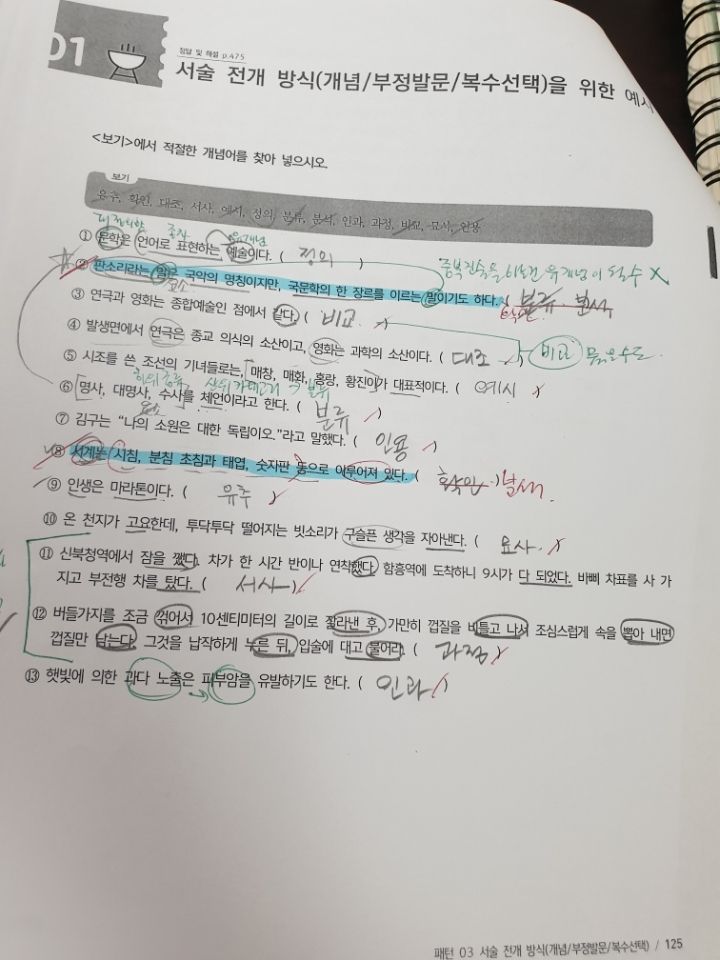 01
정답 및 해설 p.475
서술 전개 방식(개념/부정발문/복수선택)을 위한 예시
<보기>에서 적절한 개념어를 찾아 넣으시오.
보기
유추, 확인, 대조, 서사, 예시, 정의, 분류, 분석, 인과, 과정, 비교, 묘사, 인용
피정의항 종차 유개념
① 문학은 언어로 표현하는 예술이다. ( 정의 )
② 판소리라는 말은 국악의 명칭이지만, 국문학의 한 장르를 이르는 말이기도 하다. ( 분류
③ 연극과 영화는 종합예술인 점에서 같다. ( 비교 )
④ 발생면에서 연극은 종교 의식의 소산이고, 영화는 과학의 소산이다. ( 대조 ) 비교
⑤ 시조를 쓴 조선의 기녀들로는, 매창, 매화, 홍랑, 황진이가 대표적이다. ( 예시 )
⑥ 명사, 대명사, 수사를 체언이라고 한다. ( 분류 )
⑦ 김구는 “나의 소원은 대한 독립이오.”라고 말했다. ( 인용 )
⑧ 시계는 시침, 분침 초침과 태엽, 숫자판 등으로 이루어져 있다. ( 확인 ) 분석
⑨ 인생은 마라톤이다. ( 유추 )
⑩ 온 천지가 고요한데, 투닥투닥 떨어지는 빗소리가 구슬픈 생각을 자아낸다. ( 묘사 )
⑪ 신북청역에서 잠을 깼다. 차가 한 시간 반이나 연착했다. 함흥역에 도착하니 9시가 다 되었다. 바삐 차표를 사 가
지고 부전행 차를 탔다. ( 서사 )
⑫ 버들가지를 조금 꺾어서 10센티미터의 길이로 잘라낸 후, 가만히 껍질을 비틀고 나서 조심스럽게 속을 뽑아 내면
껍질만 남는다. 그것을 납작하게 누른 뒤, 입술에 대고 불어라. ( 과정 )
⑬ 햇빛에 의한 과다 노출은 피부암을 유발하기도 한다. ( 인과 )
패턴 03 서술 전개 방식(개념/부정발문/복수선택) / 125